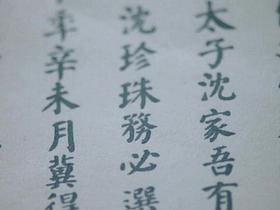 太子沈家吾有
沈珍珠務必選
年辛未月冀得